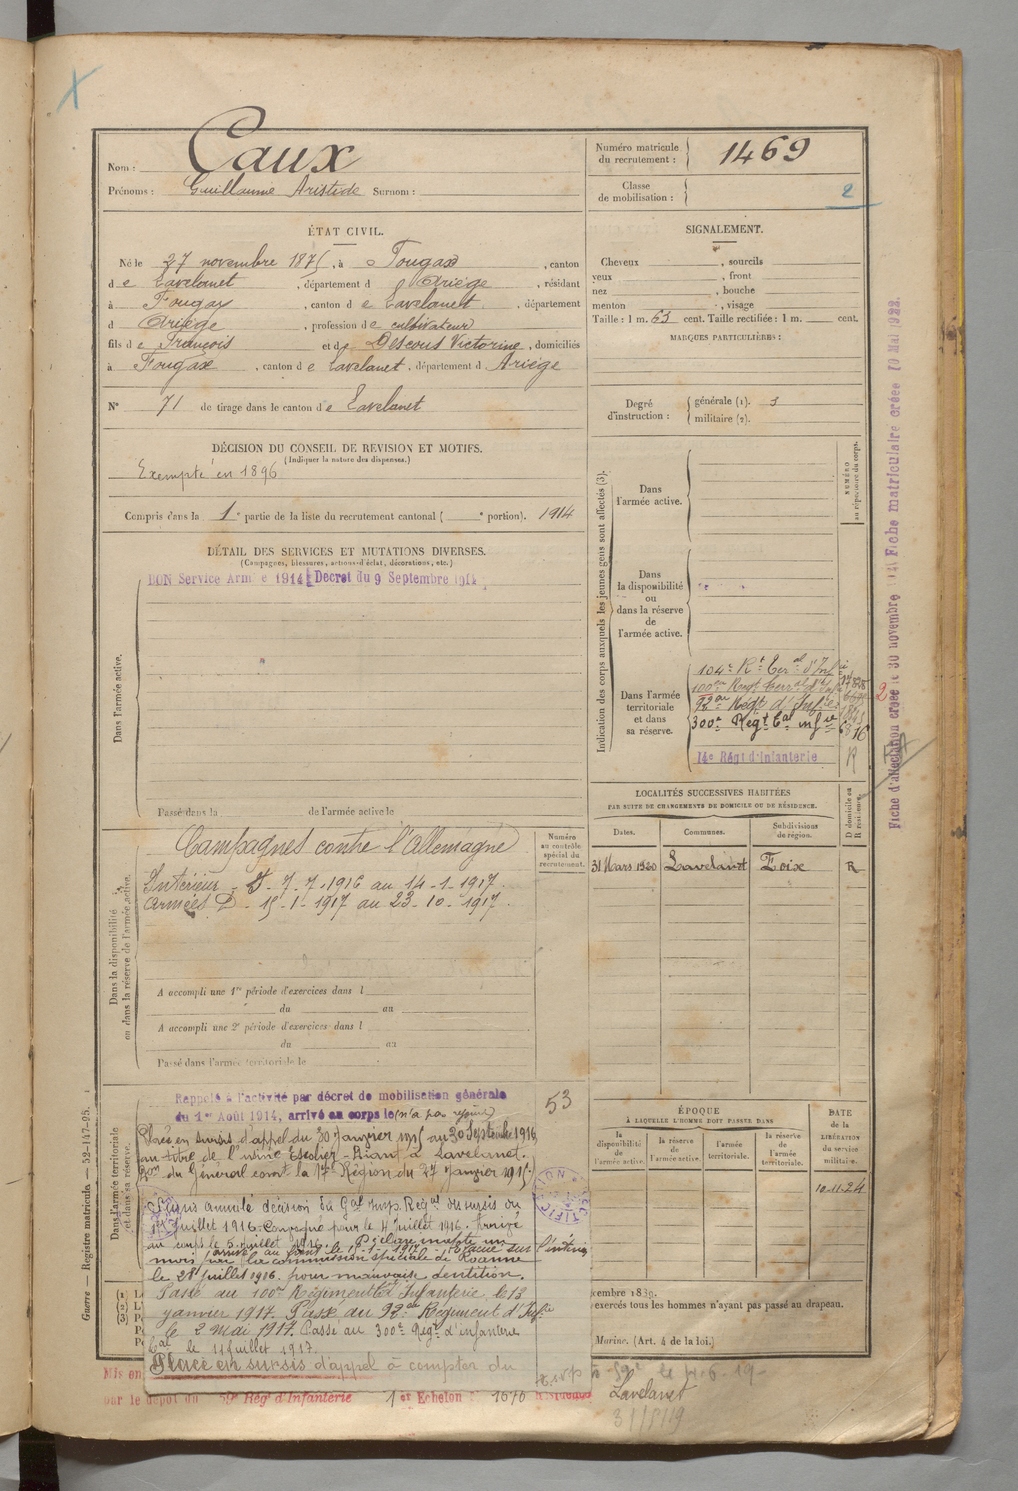 Nom : Caux
Prénoms : Guillaume Aristide Surnom :
Numéro matricule du recrutement : 1469
Classe de mobilisation : 2
ÉTAT CIVIL.
Né le 27 novembre 1875, à Fougax, canton
de Lavelanet, département d Ariège, résidant
à Fougax, canton de Lavelanet, département
d Ariège, profession de cultivateur
fils de François et de Descous Victorine, domiciliés
à Fougax, canton de Lavelanet, département d Ariège
N° 71 de tirage dans le canton de Lavelanet
SIGNALEMENT.
Cheveux , sourcils
yeux , front
nez , bouche
menton , visage
Taille : 1 m. 63 cent. Taille rectifiée : 1 m. cent.
MARQUES PARTICULIÈRES :
Degré d'instruction : générale (1). 3
militaire (2).
DÉCISION DU CONSEIL DE REVISION ET MOTIFS.
(Indiquer la nature des dispenses.)
Exempté en 1896
Compris dans la 1e partie de la liste du recrutement cantonal ( e portion). 1914
DÉTAIL DES SERVICES ET MUTATIONS DIVERSES.
(Campagnes, blessures, actions d'éclat, décorations, etc.)
BON Service Armé 1914 Decret du 9 Septembre 1914
Dans l'armée active.
Passé dans la de l'armée active le
Indication des corps auxquels les jeunes gens sont affectés (3).
NUMÉRO au répertoire du corps.
Dans l'armée active.
Dans la disponibilité ou dans la réserve de l'armée active.
Dans l'armée territoriale et dans sa réserve.
104e Rt Teral d'Infie
100me Regt Terral d'Infie
92me Régt d'Infie
300e Régt Tal infie
14e Régt d'Infanterie
R
LOCALITÉS SUCCESSIVES HABITÉES
PAR SUITE DE CHANGEMENTS DE DOMICILE OU DE RÉSIDENCE.
Dates. Communes. Subdivisions de région. D domicile ou R résidence.
31 Mars 1920 Lavelanet Foix R
Dans la disponibilité ou dans la réserve de l'armée active.
Numéro au contrôle spécial du recrutement.
Campagnes contre l'Allemagne
Intérieur - S - 7-7-1916 au 14-1-1917.
Armées D - 15-1-1917 au 23-10-1917.
A accompli une 1re période d'exercices dans l
du au
A accompli une 2e période d'exercices dans l
du au
Passé dans l'armée territoriale le
Dans l'armée territoriale et dans sa réserve.
53
Rappelé à l'activité par décret de mobilisation générale
du 1er Août 1914, arrivé au corps le (n'a pas rejoint)
Placé en sursis d'appel du 30 janvier 1915 au 30 Septembre 1916,
au titre de l'usine Escolier-Riant à Lavelanet.
Don du Général comt la 17e Région du 27 janvier 1915.
Sursis annulé décision du Gal Insp. Regal des sursis du
1er juillet 1916. Convoqué pour le 4 juillet 1916. Arrivé
au corps le 5 juillet 1916. Déclaré inapte un
arrivé au front le 15-1-1917. Evacué sur l'intérieur
mois par la commission spéciale de Roanne
le 28 juillet 1916. pour mauvaise dentition.
Passé au 100me Régiment tal Infanterie, le 13
janvier 1917. Passé au 92me Régiment d'Infie
le 2 Mai 1917. Passé au 300e Regt d'infanterie
tal le 11 juillet 1917.
Placé en sursis d'appel à compter du
ÉPOQUE
À LAQUELLE L'HOMME DOIT PASSER DANS
la disponibilité de l'armée active. la réserve de l'armée active. l'armée territoriale. la réserve de l'armée territoriale.
DATE DE LA LIBÉRATION du service militaire.
10-11-24
exercés tous les hommes n'ayant pas passé au drapeau.
Marine. (Art. 4 de la loi.)
Mis en
par le dépôt du 59e Rég d'Infanterie 1er Echelon 1670
le 4.6.19
Lavelanet
31/5/19
Guerre — Registre matricule. — 52-147-95.
Fiche d'affectation créée le 30 novembre Fiche matriculaire créée 10 Mai 1922.
2